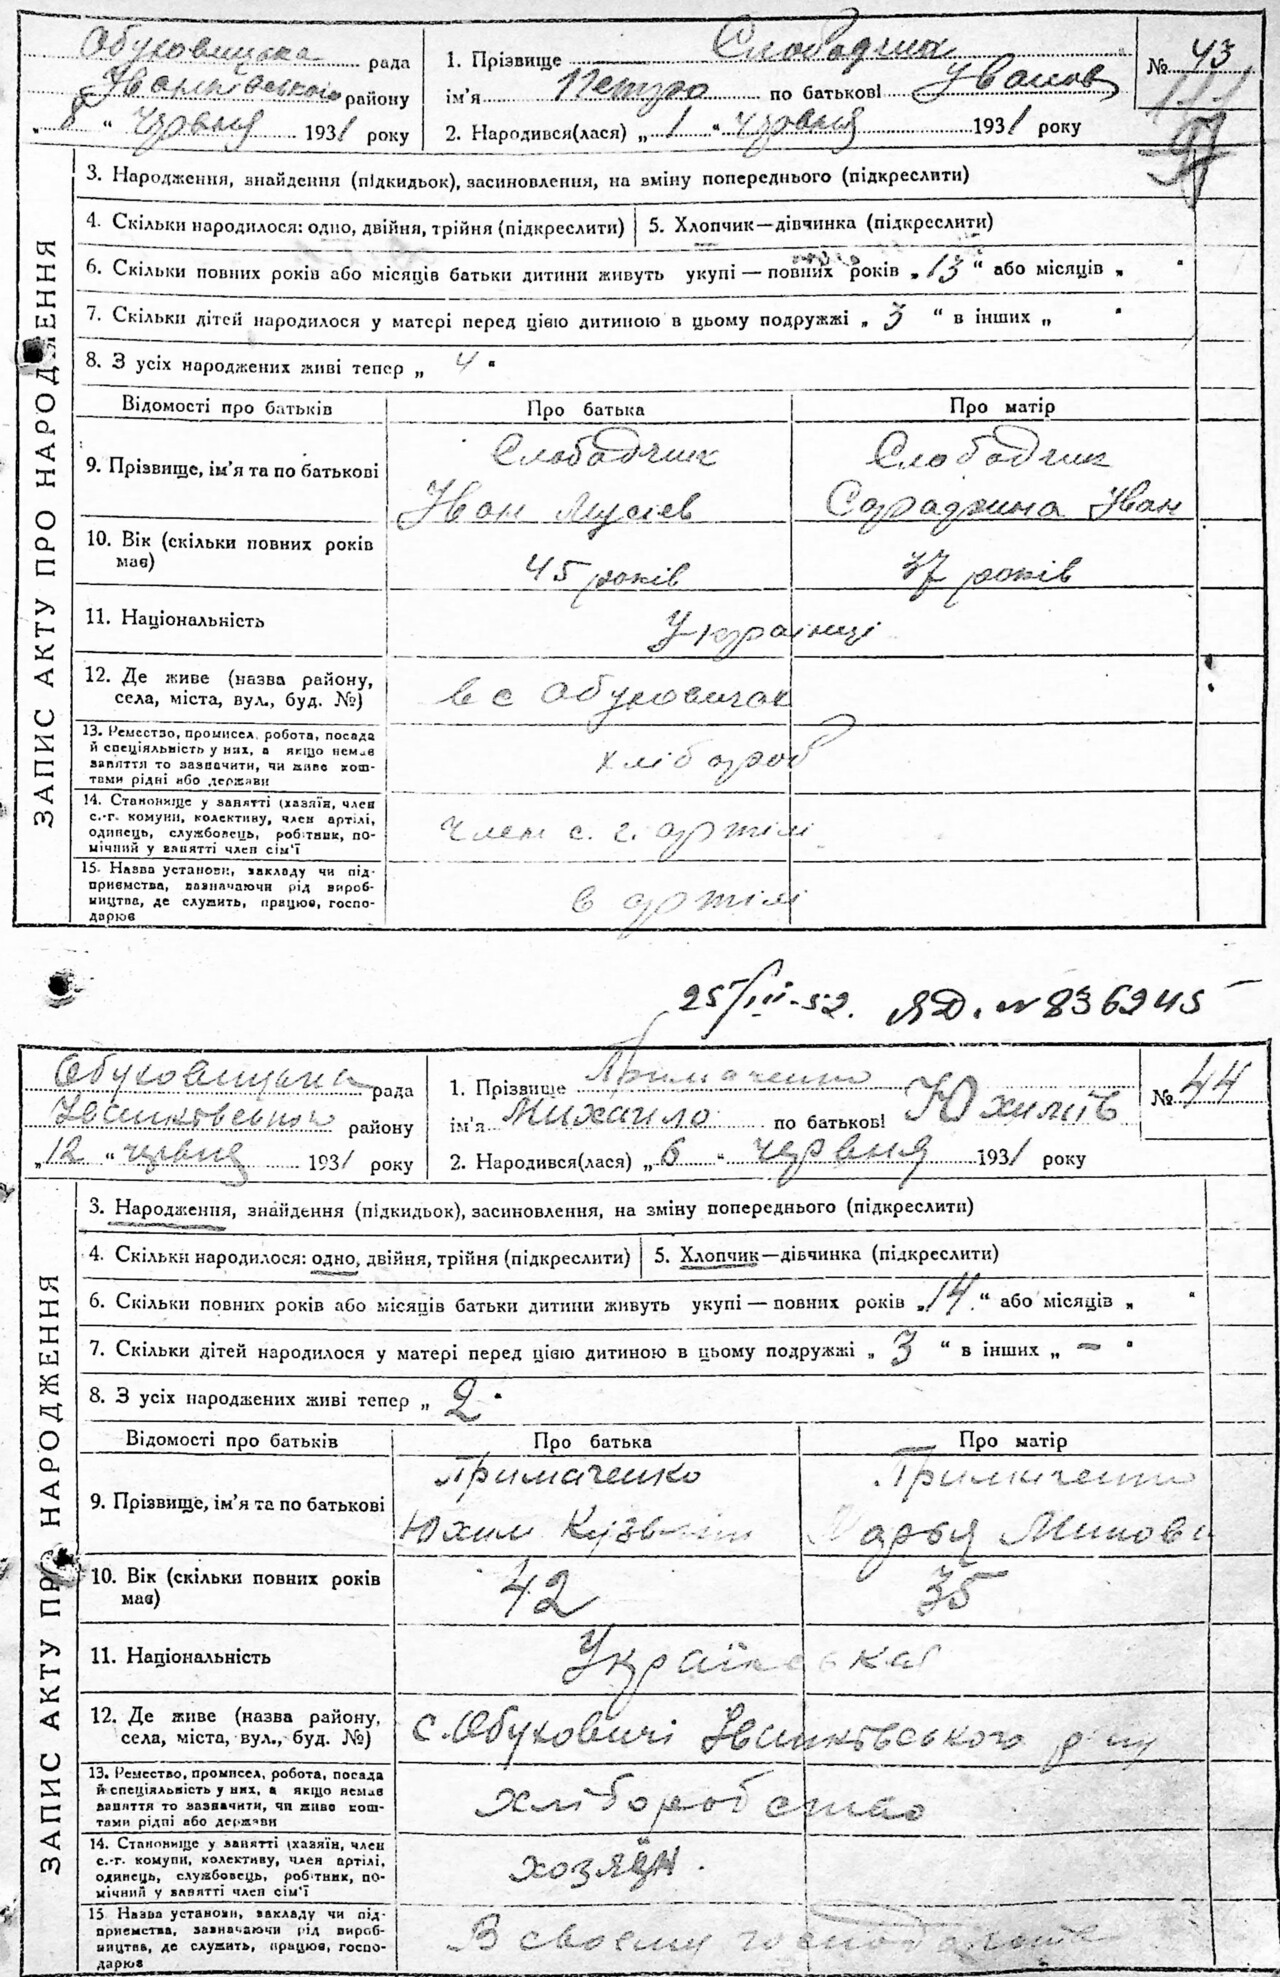 Обуховицька рада
Іванківського району
„ 8 “ червня 1931 року
1. Прізвище Слободчик
ім'я Петро по батькові Іванов
2. Народився(лася) „ 1 “ червня 1931 року
№ 43
ЗАПИС АКТУ ПРО НАРОДЖЕННЯ
3. Народження, знайдення (підкидьок), засиновлення, на зміну попереднього (підкреслити)
4. Скільки народилося: одно, двійня, трійня (підкреслити) 5. Хлопчик—дівчинка (підкреслити)
6. Скільки повних років або місяців батьки дитини живуть укупі — повних років „ 13 “ або місяців „ “
7. Скільки дітей народилося у матері перед цією дитиною в цьому подружжі „ 3 “ в інших „ “
8. З усіх народжених живі тепер „ 4 “
Відомості про батьків Про батька Про матір
9. Прізвище, ім'я та по батькові
Слободчик
Іван Мусієв
Слободчик
Іван
10. Вік (скільки повних років має) 45 років 37 років
11. Національність Українці
12. Де живе (назва району,
села, міста, вул., буд. №)
в с Обуховичах
13. Ремество, промисел, робота, посада
й спеціяльність у них, а якщо немає
заняття то зазначити, чи живе кош-
тами рідні або держави
хлібороб
14. Становище у занятті (хазяїн, член
с.-г. комуни, колективу, член артілі,
одинець, службовець, робітник, по-
мічний у занятті член сім'ї
член с. г. артілі
15. Назва установи, закладу чи під-
приємства, зазначаючи рід вироб-
ництва, де служить, працює, госпо-
дарює
в артілі
25/III-52. ЯД. № 836245
Обуховицька рада
Іванківського району
„ 12 “ червня 1931 року
1. Прізвище Примаченко
ім'я Михайло по батькові Юхимів
2. Народився(лася) „ 6 “ червня 1931 року
№ 44
ЗАПИС АКТУ ПРО НАРОДЖЕННЯ
3. Народження, знайдення (підкидьок), засиновлення, на зміну попереднього (підкреслити)
4. Скільки народилося: одно, двійня, трійня (підкреслити) 5. Хлопчик—дівчинка (підкреслити)
6. Скільки повних років або місяців батьки дитини живуть укупі — повних років „ 14 “ або місяців „ “
7. Скільки дітей народилося у матері перед цією дитиною в цьому подружжі „ 3 “ в інших „ – “
8. З усіх народжених живі тепер „ 2 “
Відомості про батьків Про батька Про матір
9. Прізвище, ім'я та по батькові
Примаченко
Юхим Кузьмін
Примаченко
Марья Минова
10. Вік (скільки повних років має) 42 35
11. Національність Українська
12. Де живе (назва району,
села, міста, вул., буд. №)
с. Обуховичі Іванківського р-ну
13. Ремество, промисел, робота, посада
й спеціяльність у них, а якщо немає
заняття то зазначити, чи живе кош-
тами рідні або держави
хліборобство
14. Становище у занятті (хазяїн, член
с.-г. комуни, колективу, член артілі,
одинець, службовець, робітник, по-
мічний у занятті член сім'ї
хозяїн.
15 Назва установи, закладу чи під-
приємства, зазначаючи рід вироб-
ництва, де служить, працює, госпо-
дарює
В своєму господарстві